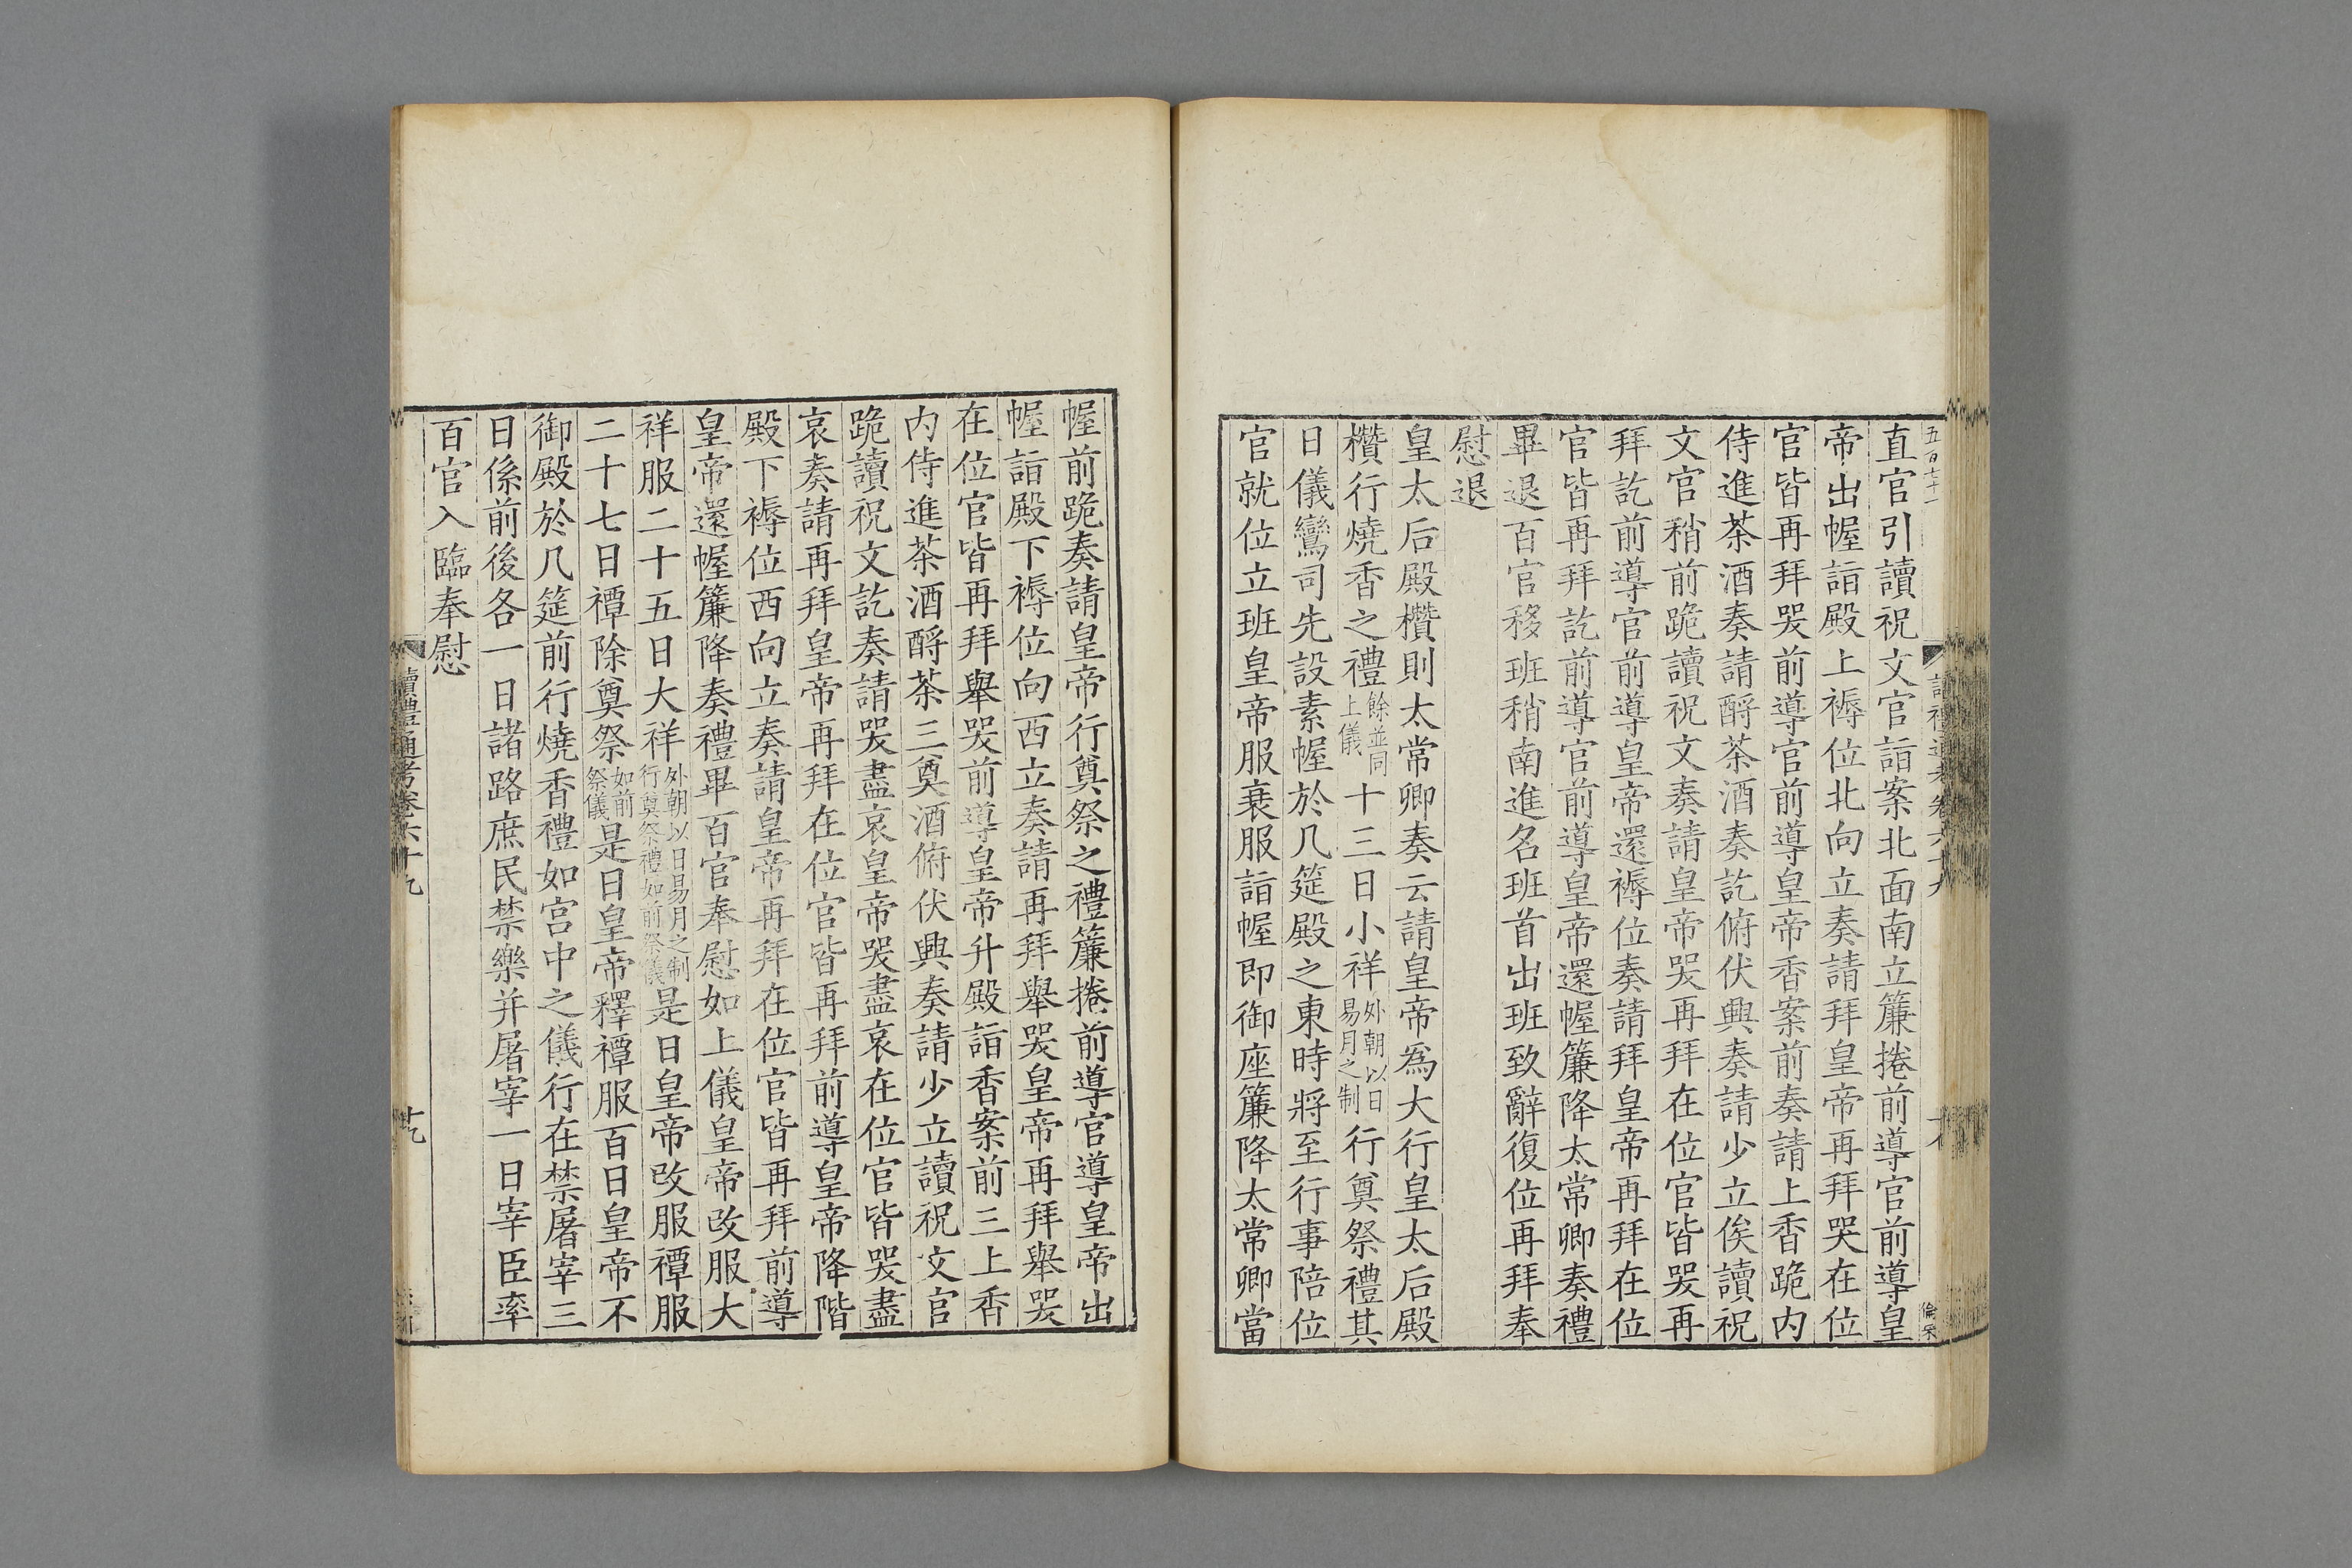 五百七十一
讀禮通考卷六十九
十八
直官引讀祝文官詣案北面南立簾捲前導官前導皇
帝出幄詣殿上褥位北向立奏請拜皇帝再拜哭在位
官皆再拜哭前導官前導皇帝香案前奏請上香跪内
侍進茶酒奏請酹茶酒奏訖俯伏興奏請少立俟讀祝
文官稍前跪讀祝文奏請皇帝哭再拜在位官皆哭再
拜訖前導官前導皇帝還褥位奏請拜皇帝再拜在位
官皆再拜訖前導官前導皇帝還幄簾降太常卿奏禮
畢退百官移班稍南進名班首出班致辭復位再拜奉
慰退
皇太后殿欑則太常卿奏云請皇帝爲大行皇太后殿
欑行燒香之禮餘並同上儀十三日小祥外朝以日易月之制行奠祭禮其
日儀鸞司先設素幄於几筵殿之東時將至行事陪位
官就位立班皇帝服衰服詣幄即御座簾降太常卿當
幄前跪奏請皇帝行奠祭之禮簾捲前導官導皇帝出
幄詣殿下褥位向西立奏請再拜舉哭皇帝再拜舉哭
在位官皆再拜舉哭前導皇帝升殿詣香案前三上香
内侍進茶酒酹茶三奠酒俯伏興奏請少立讀祝文官
跪讀祝文訖奏請哭盡哀皇帝哭盡哀在位官皆哭盡
哀奏請再拜皇帝再拜在位官皆再拜前導皇帝降階
殿下褥位西向立奏請皇帝再拜在位官皆再拜前導
皇帝還幄簾降奏禮畢百官奉慰如上儀皇帝改服大
祥服二十五日大祥外朝以日易月之制行奠祭禮如前祭儀是日皇帝改服禫服
二十七日禫除奠祭如前祭儀是日皇帝釋禫服百日皇帝不
御殿於几筵前行燒香禮如宮中之儀行在禁屠宰三
日係前後各一日諸路庶民禁樂并屠宰一日宰臣率
百官入臨奉慰
讀禮通考卷六十九
十九